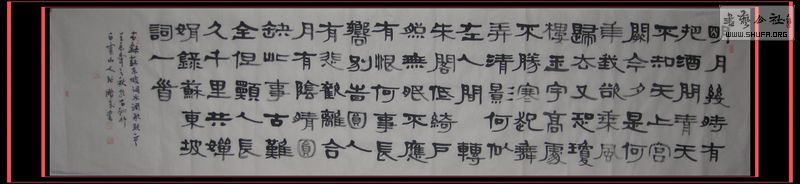 明月幾時有
把酒問青天
不知天上宮
闕今夕是何
年我欲乘風
歸去又恐瓊
樓玉宇高處
不勝寒起舞
弄清影何似
在人間 轉
朱閣低綺戶
照無眠不應
有恨何事長
嚮別旹圓人
有悲歡離合
月有陰晴圓
缺此事古難
全但願人長
久千里共嬋
娟錄蘇東坡
詞一首
書法公社
WWW.SHUFA.ORG